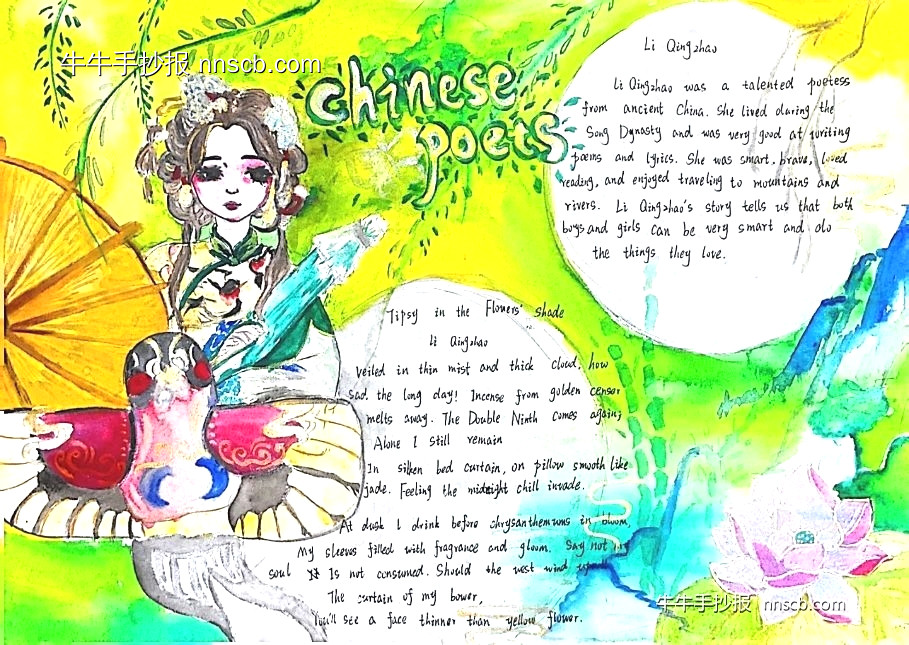 牛牛手抄报 nnscb.com
chinese
poets
Li Qingzhao
Li Qingzhao was a talented poetess
from ancient China. She lived during the
Song Dynasty and was very good at writing
poems and lyrics. She was smart, brave, loved
reading, and enjoyed traveling to mountains and
rivers. Li Qingzhao's story tells us that both
boys and girls can be very smart and do
the things they love.
Tipsy in the Flowers' shade
Li Qingzhao
Veiled in thin mist and thick cloud, how
sad the long day! Incense from golden censer
melts away. The Double Ninth comes again;
Alone I still remain
In silken bed curtain, on pillow smooth like
jade. Feeling the midnight chill invade.
At dusk I drink before chrysanthemums in bloom,
My sleeves filled with fragrance and gloom. Say not
soul Is not consumed. Should the west wind
The curtain of my bower,
You'll see a face thinner than yellow flower.
牛牛手抄报 nnscb.com